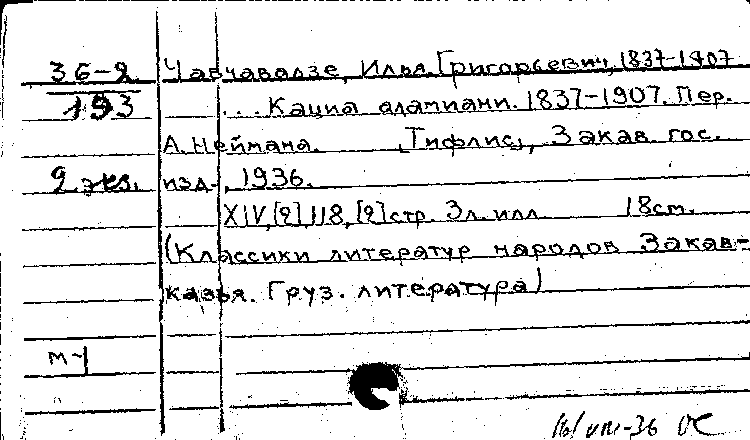 36-2 Чавчавадзе, Илья Григорьевич, 1837-1907
193 ...Кациа адамиани. 1837-1907. Пер.
А. Неймана. [Тифлис], Закав. гос.
2 экз. изд-, 1936.
XIV, [2], 118, [2] стр. 3 л. илл 18 см.
(Классики литератур народов Закав-
казья. Груз. литература)
м-ч